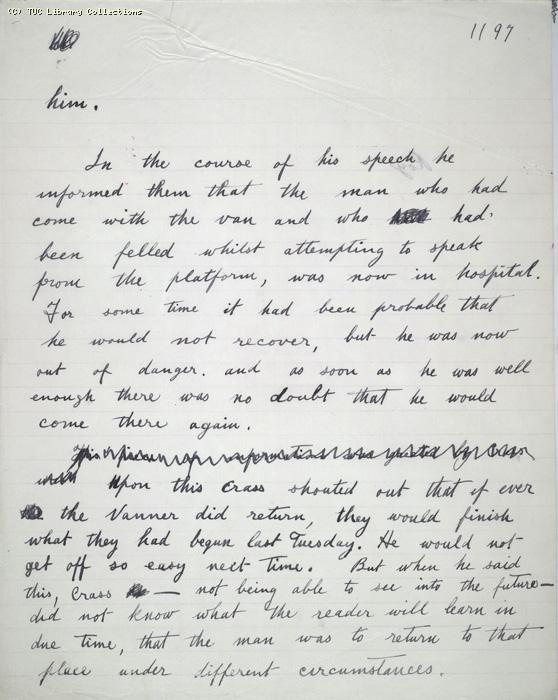 (C) TUC Library Collections
1197
him.
In the course of his speech he
informed them that the man who had
come with the van and who had
been felled whilst attempting to speak
from the platform, was now in hospital.
For some time it had been probable that
he would not recover, but he was now
out of danger. and as soon as he was well
enough there was no doubt that he would
come there again.
This piece of information was greeted by
Upon this Crass shouted out that if ever
the Vanner did return, they would finish
what they had begun last Tuesday. He would not
get off so easy next time. But when he said
this, Crass — not being able to see into the future —
did not know what the reader will learn in
due time, that the man was to return to that
place under different circumstances.